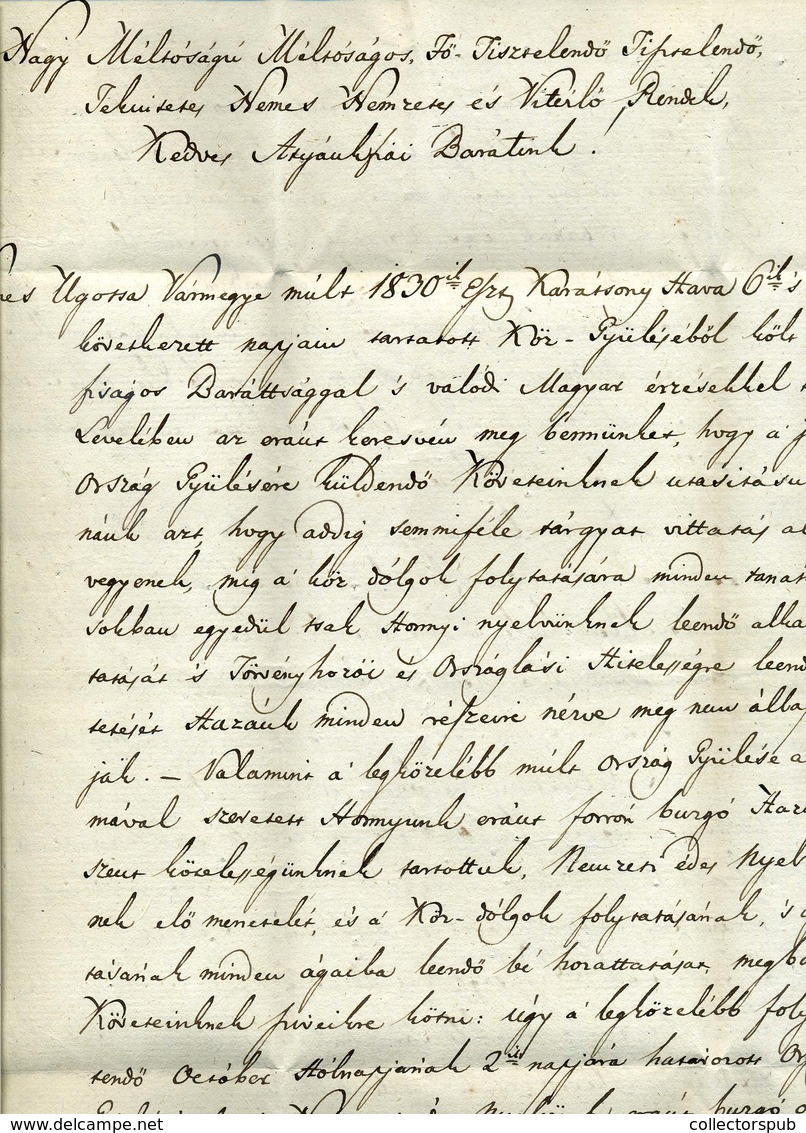 Nagy Méltóságú Méltóságos, Fő-Tisztelendő Tisztelendő,
Tekintetes Nemes Nemzetes és Vitézlő Rendek,
Kedves Atyánkfiai Barátink!
mes Ugotsa Vármegye múlt 1830ik Eszt. Karátsony Hava 6ik 's
következett napjain tartatott Köz-Gyüléséből költ
Baráttsággal 's valódi Magyar érzésekkel
Levelében az eránt keresvén meg bennünket, hogy a' j
Ország Gyülésére küldendő Követeinknek utasitásu
nánk azt, hogy addig semmiféle tárgyat vittatás al
vegyenek, mig a' köz dólgok folytatására minden taná
sokban egyedül tsak Honnyi nyelvünknek leendő alka
tatását is Törvényhozói és Országlási Hitelességre leend
tetését Hazánk minden részeire nézve meg nem állap
ják. – Valamint a' legközelébb múlt Ország Gyülése a
mával szeretett Honnyunk eránt forrón buzgó Haza
szent kötelességünknek tartottuk, Nemzeti édes Nyel
nek elő menetelét, és a' Köz-dólgok fólytatásának, 's
tásának minden ágaiba leendő bé hozattatását, megbi
Követeinknek sziveikre kötni: úgy a' legközelébb foly
tendő October Hólnapjának 2ik napjára határozott Or